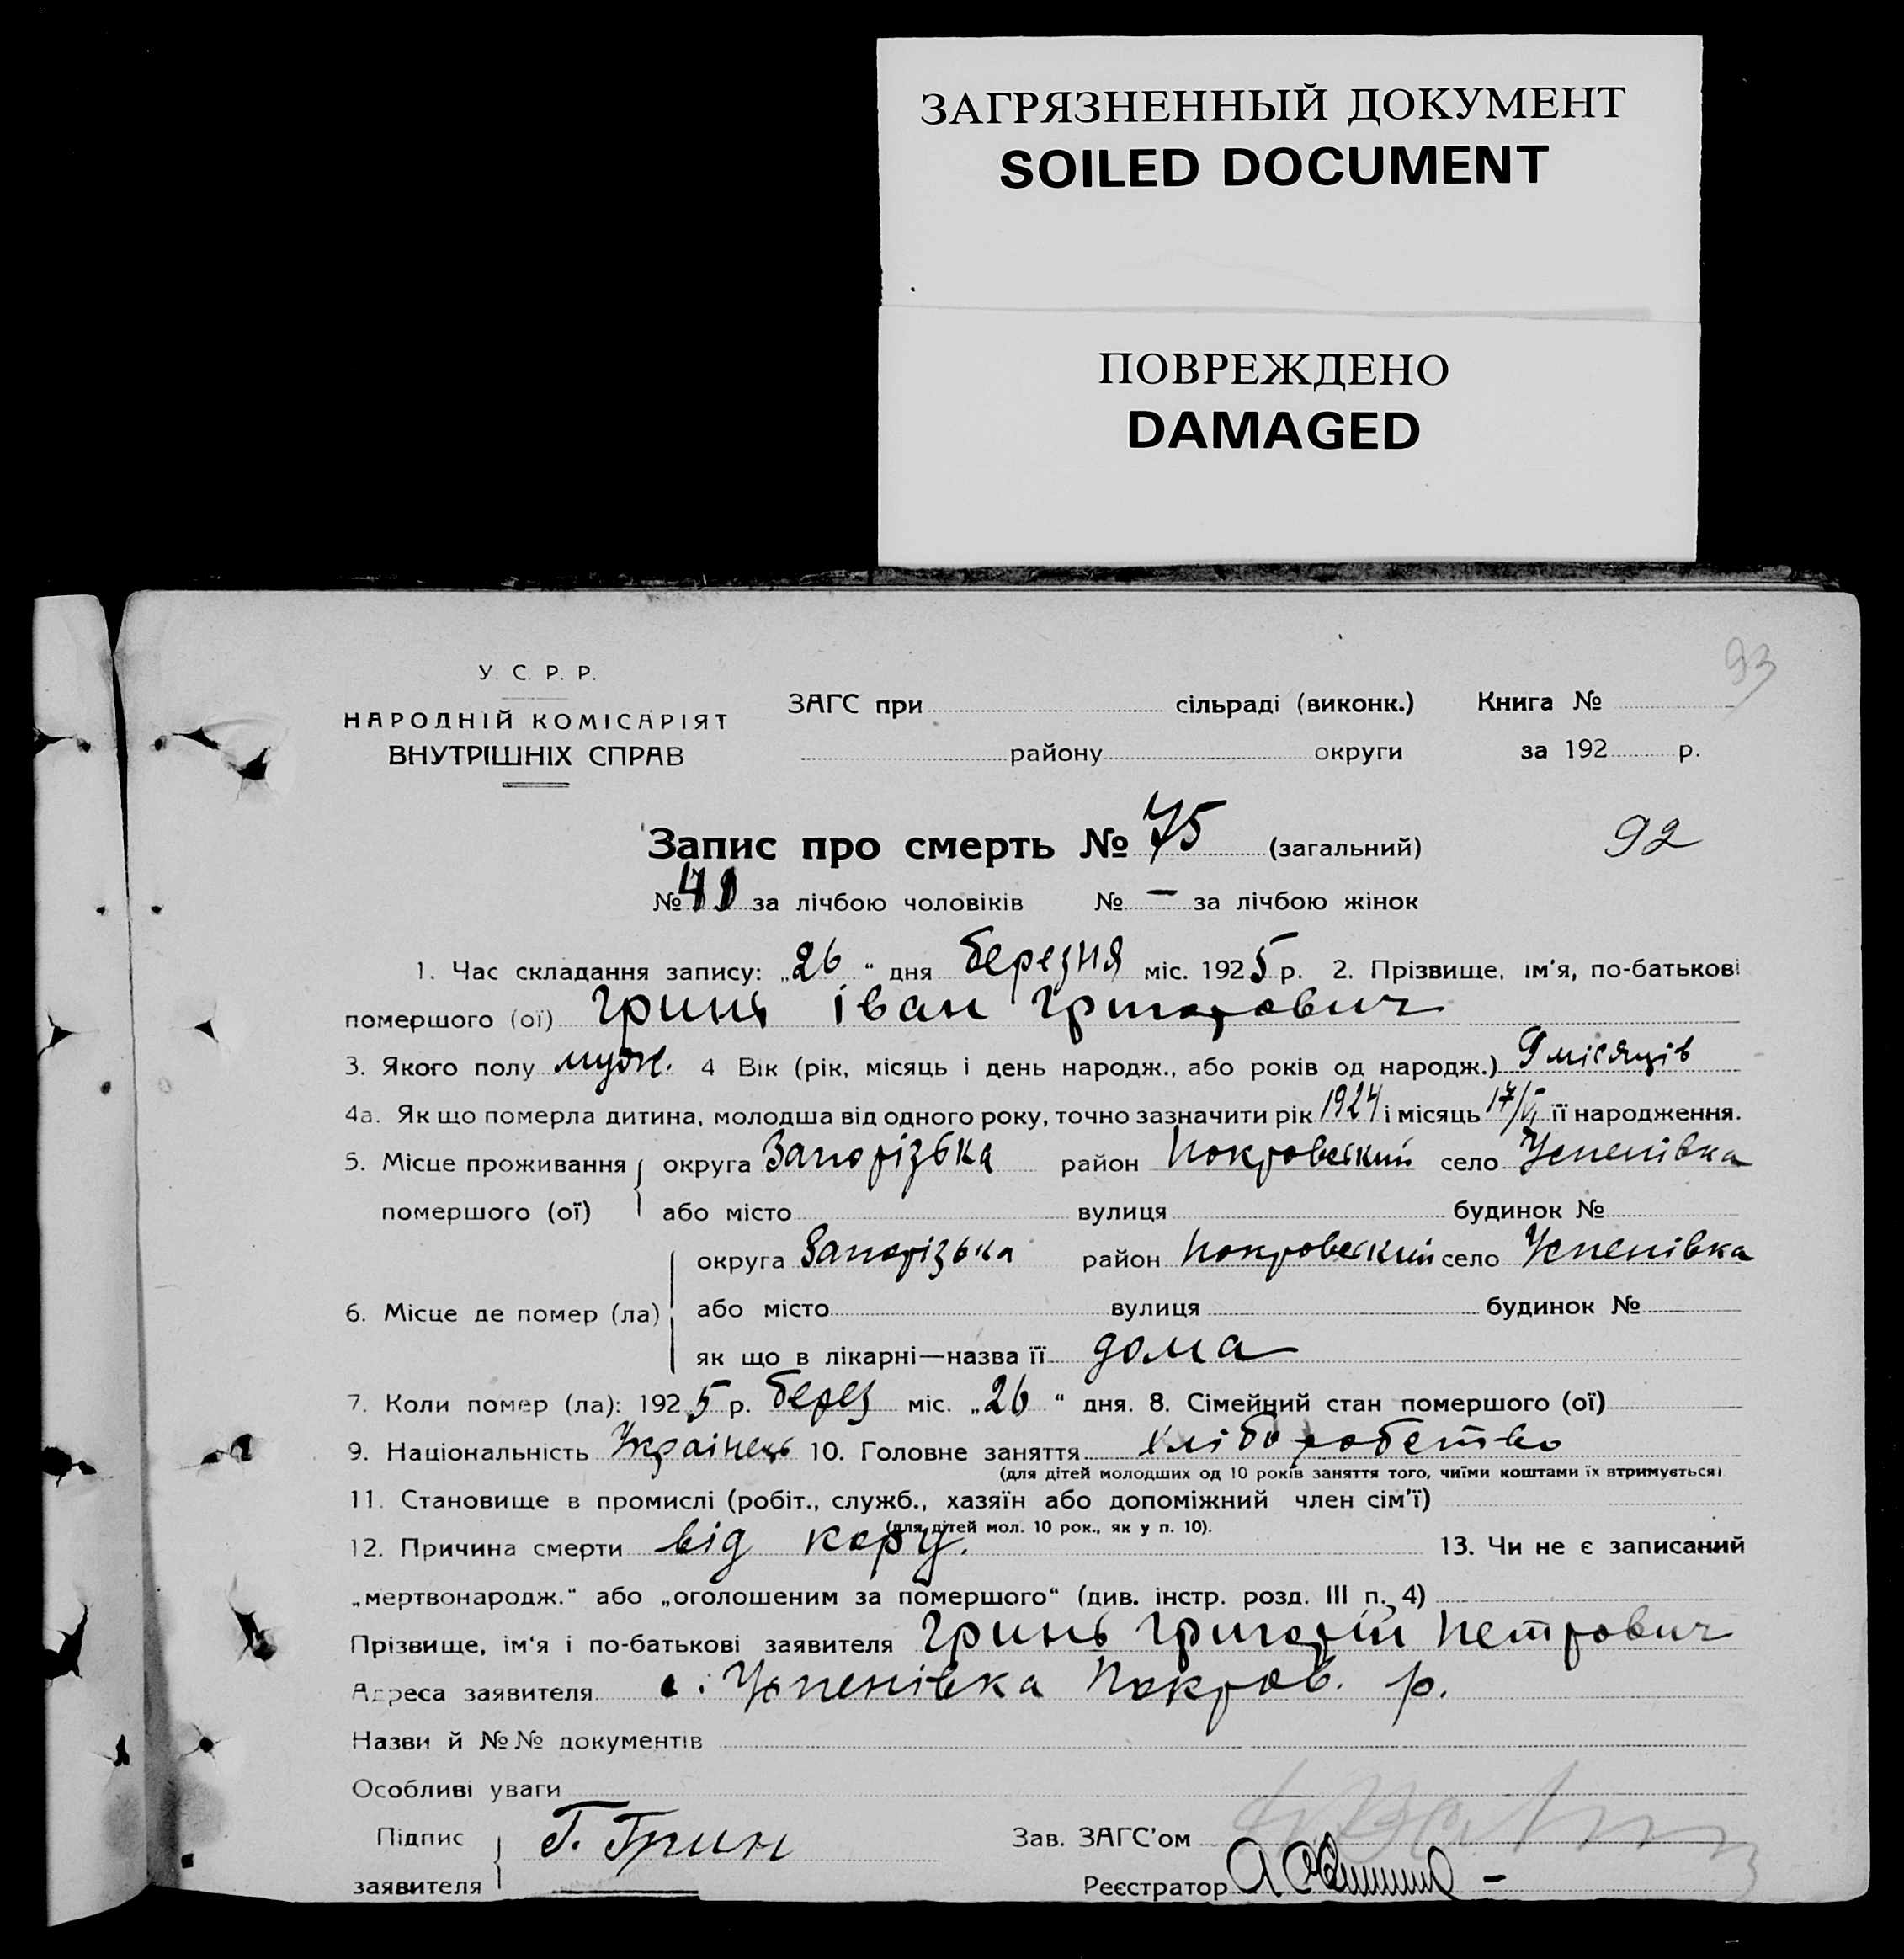 ЗАГРЯЗНЕННЫЙ ДОКУМЕНТ
SOILED DOCUMENT
ПОВРЕЖДЕНО
DAMAGED
93
У. С. Р. Р.
НАРОДНІЙ КОМІСАРІЯТ
ВНУТРІШНІХ СПРАВ
ЗАГС при сільраді (виконк.) Книга №
району округи за 192 р.
Запис про смерть № 75 (загальний) 92
№ 41 за лічбою чоловіків № — за лічбою жінок
1. Час складання запису: „26“ дня березня міс. 1925 р. 2. Прізвище, ім'я, по-батькові
помершого (ої) Гринь Іван Григорович
3. Якого полу муж. 4 Вік (рік, місяць і день народж., або років од народж.) 9 місяців
4а. Як що померла дитина, молодша від одного року, точно зазначити рік 1924 і місяць 17/VI її народження.
5. Місце проживання округа Запорізька район Покровський село Успенівка
помершого (ої) або місто вулиця будинок №
округа Запорізька район Покровський село Успенівка
6. Місце де помер (ла) або місто вулиця будинок №
як що в лікарні—назва її дома
7. Коли помер (ла): 1925 р. берез міс. „26“ дня. 8. Сімейний стан помершого (ої)
9. Національність Українець 10. Головне заняття хліборобство
(для дітей молодших од 10 років заняття того, чиїми коштами їх втримується)
11. Становище в промислі (робіт., служб., хазяїн або допоміжний член сім'ї)
(для дітей мол. 10 рок., як у п. 10).
12. Причина смерти від кору. 13. Чи не є записаний
„мертвонародж.“ або „оголошеним за помершого“ (див. інстр. розд. III п. 4)
Прізвище, ім'я і по-батькові заявителя Гринь Григорій Петрович
Адреса заявителя с. Успенівка Покров. р.
Назви й №№ документів
Особливі уваги
Підпис Г. Грин Зав. ЗАГС'ом
заявителя Реєстратор